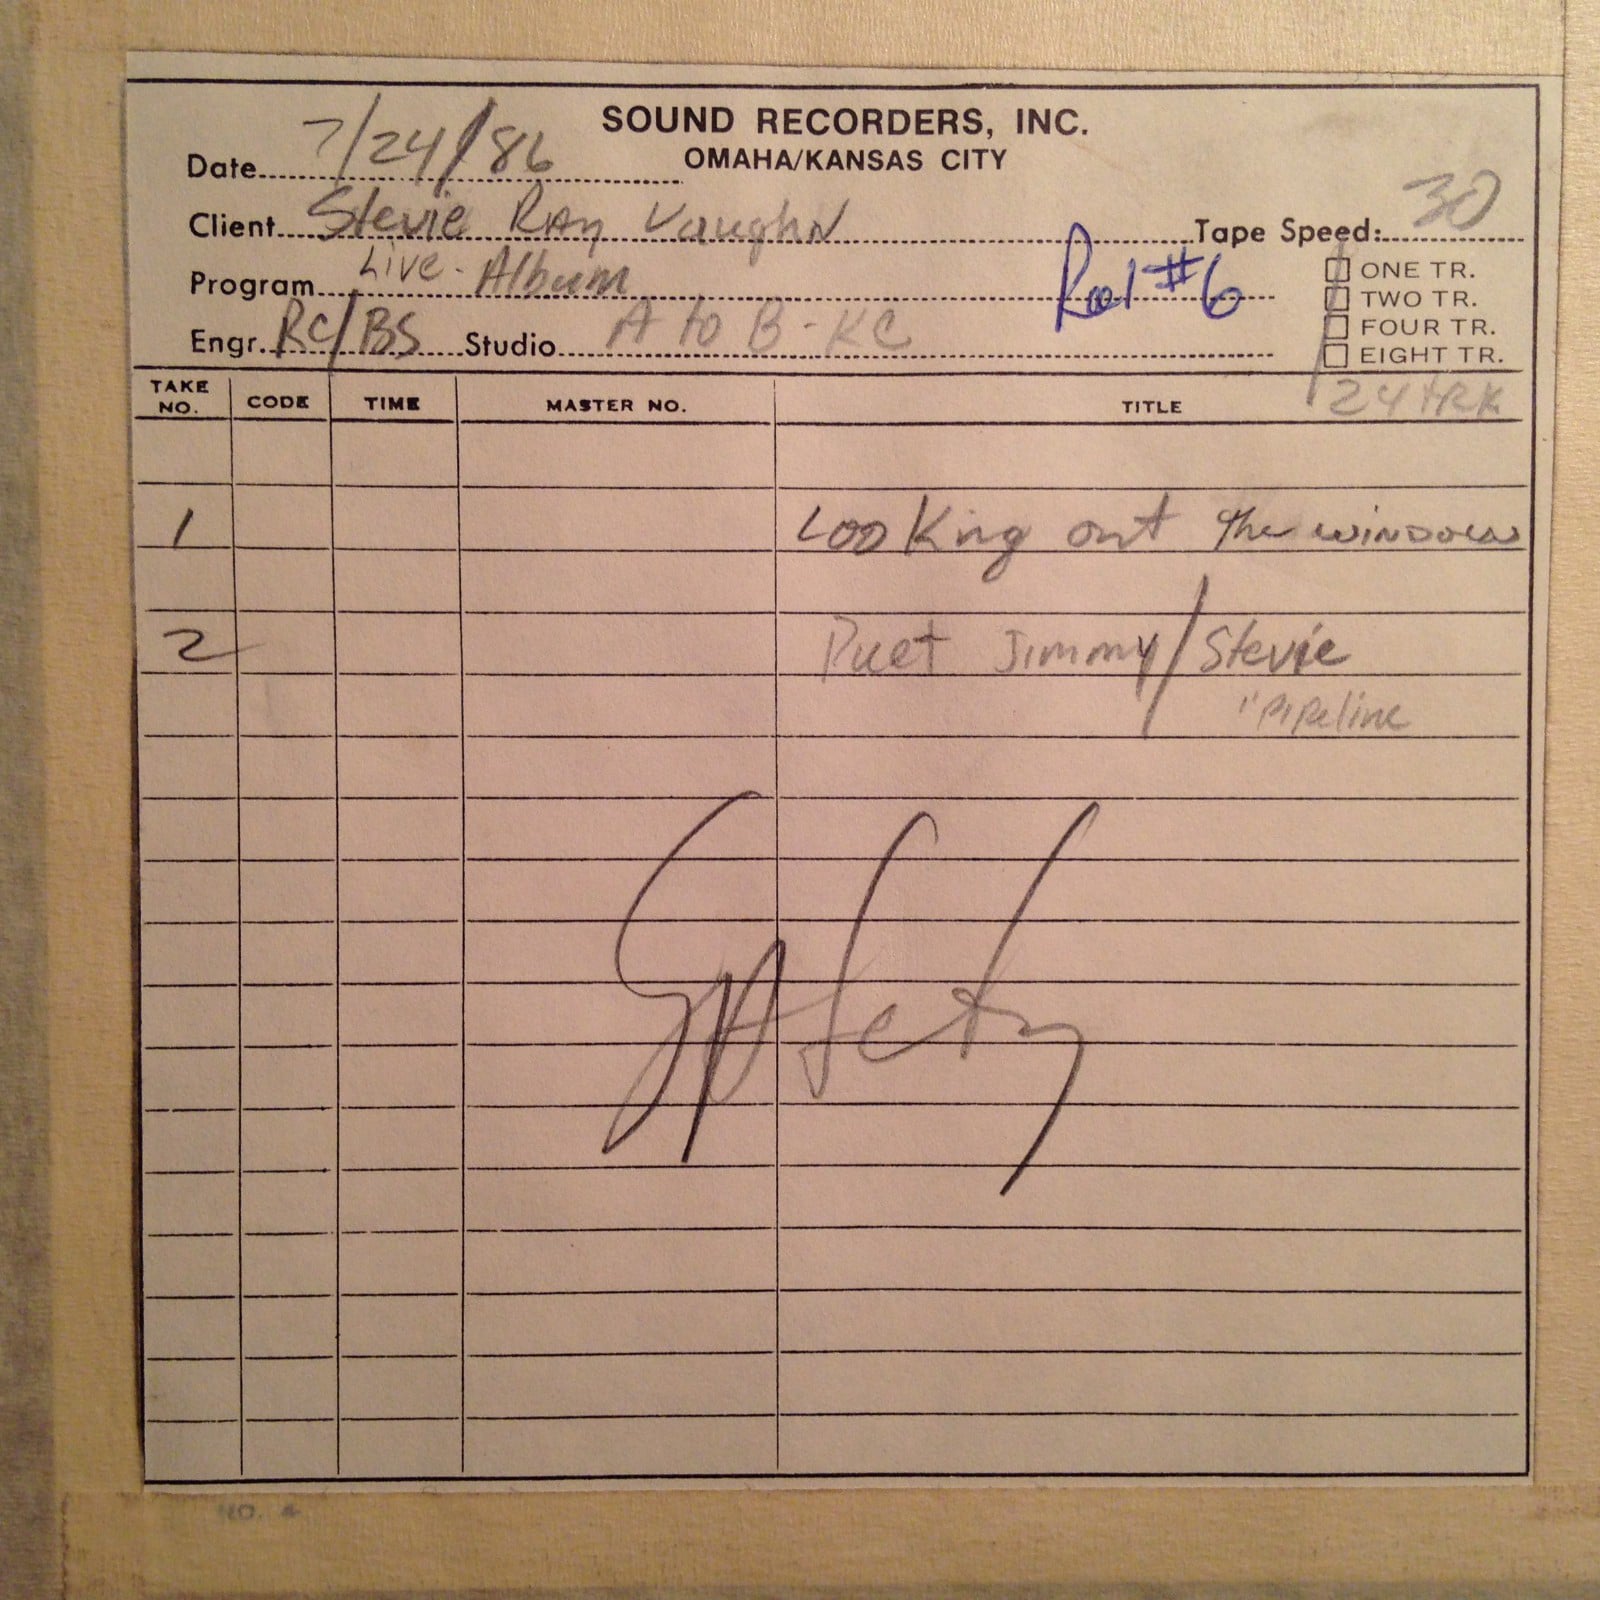 SOUND RECORDERS, INC.
OMAHA/KANSAS CITY
Date 7/24/86
Client Stevie Ray Vaughn
Tape Speed: 30
Program Live - Album
Reel #6
Engr. RC/BS Studio A to B - KC
ONE TR.
TWO TR.
FOUR TR.
EIGHT TR.
24 TRK
TAKE NO. CODE TIME MASTER NO. TITLE
1 Looking out the window
2 Duet Jimmy/Stevie
"Pipeline
Safety
NO. 4